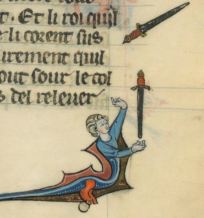 t. Et li roi quil
li corent sus
irement quil
out sour le col
s del releuer